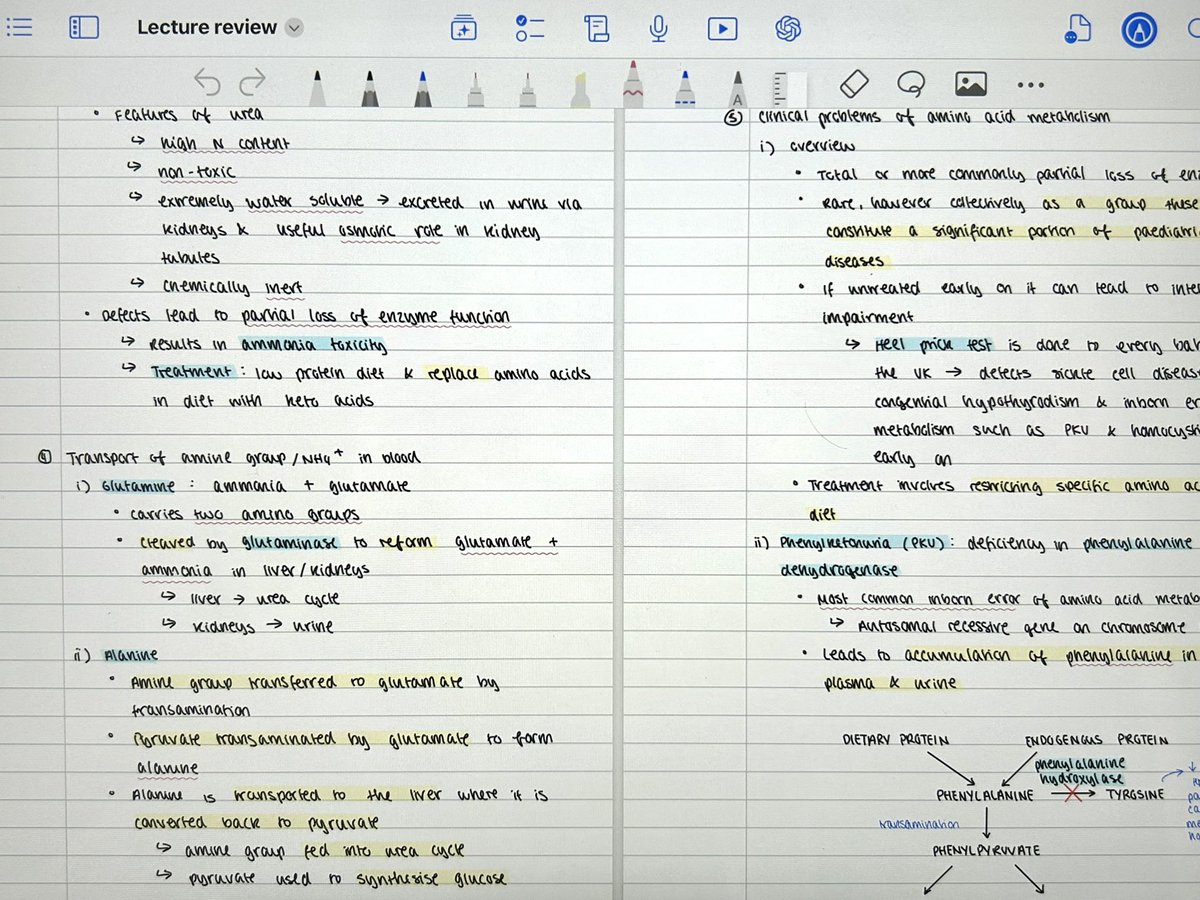 Lecture review
• Features of urea
↳ high N content
↳ non-toxic
↳ extremely water soluble → excreted in urine via
kidneys & useful osmotic role in kidney
tubules
↳ chemically inert
• Defects lead to partial loss of enzyme function
↳ Results in ammonia toxicity
↳ Treatment : low protein diet & replace amino acids
in diet with keto acids
④ Transport of amine group/NH4+ in blood
i) Glutamine : ammonia + glutamate
• carries two amino groups
• cleaved by glutaminase to reform glutamate +
ammonia in liver/kidneys
↳ liver → urea cycle
↳ kidneys → urine
ii) Alanine
• Amine group transferred to glutamate by
transamination
• Pyruvate transaminated by glutamate to form
alanine
• Alanine is transported to the liver where it is
converted back to pyruvate
↳ amine group fed into urea cycle
↳ pyruvate used to synthesise glucose
⑤ Clinical problems of amino acid metabolism
i) overview
• Total or more commonly partial loss of en
• Rare, however collectively as a group these
constitute a significant portion of paediatri
diseases
• If untreated early on it can lead to inte
impairment
↳ Heel prick test is done to every ba
the UK → detects sickle cell diseas
congenital hypothyradism & inborn er
metabolism such as PKU & homocys
early on
• Treatment involves restricting specific amino ac
diet
ii) Phenylketonuria (PKU) : deficiency in phenylalanine
dehydrogenase
• Most common inborn error of amino acid metab
↳ Autosomal recessive gene on chromosome
• Leads to accumulation of phenylalanine in
plasma & urine
DIETARY PROTEIN ENDOGENOUS PROTEIN
phenylalanine
hydroxylase
PHENYLALANINE → TYROSINE
transamination
PHENYLPYRUVATE